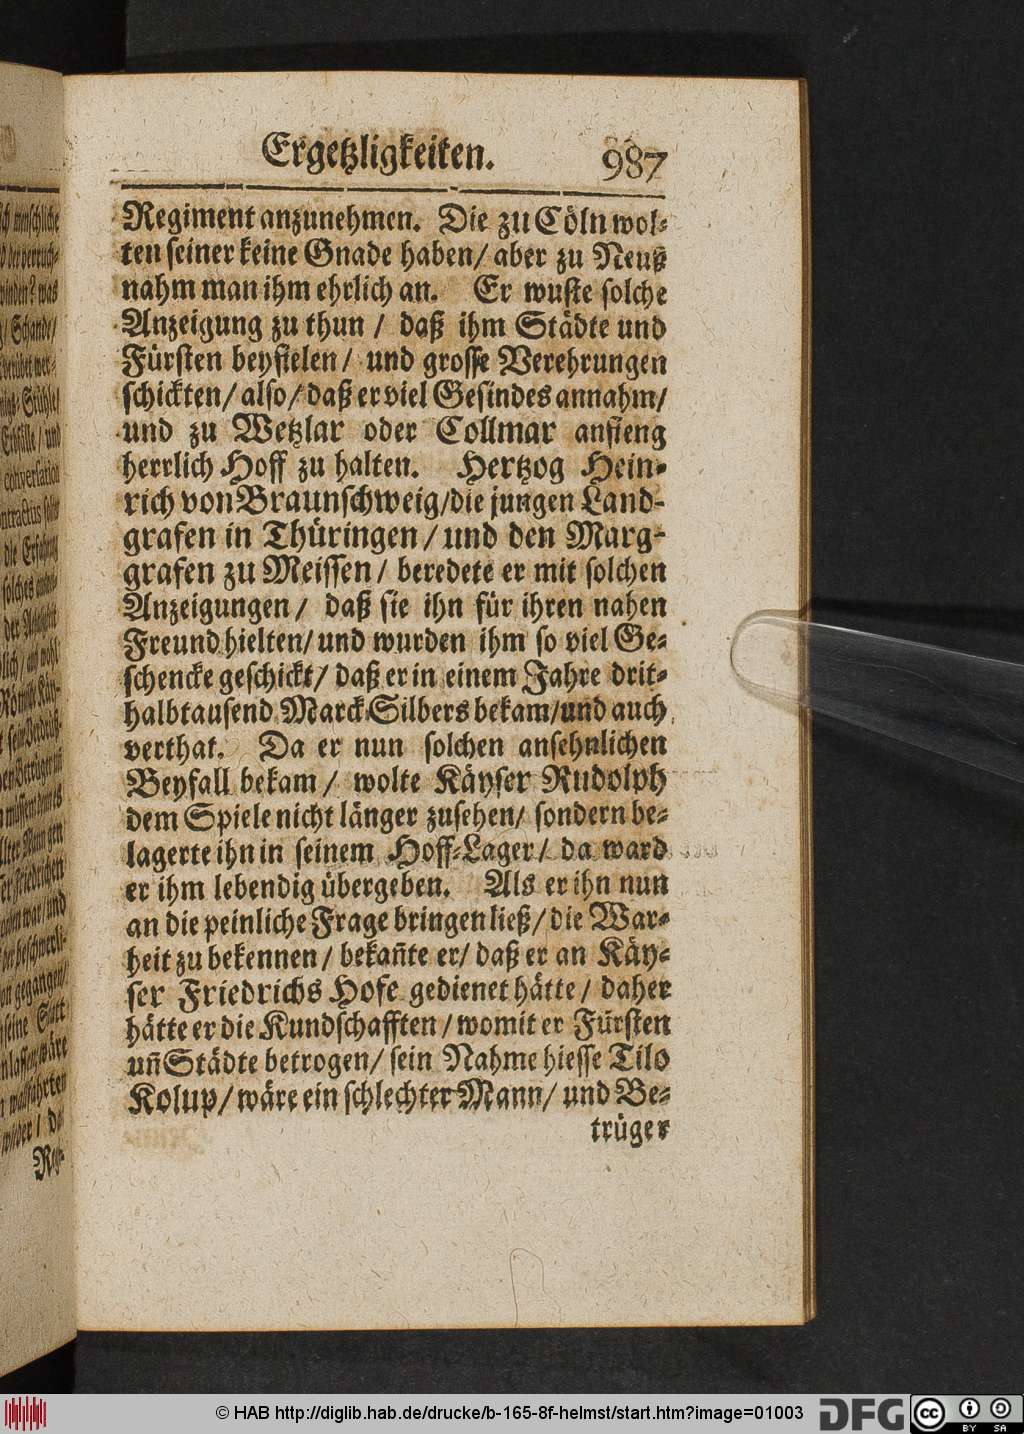 Ergetzligkeiten. 987
Regiment anzunehmen. Die zu Cöln wol-
ten seiner keine Gnade haben/ aber zu Neuß
nahm man ihm ehrlich an. Er wuste solche
Anzeigung zu thun / daß ihm Städte und
Fürsten beyfielen/ und grosse Verehrungen
schickten/ also/ daß er viel Gesindes annahm/
und zu Wetzlar oder Collmar anfieng
herrlich Hoff zu halten. Hertzog Hein-
rich von Braunschweig/die jungen Land-
grafen in Thüringen / und den Marg-
grafen zu Meissen / beredete er mit solchen
Anzeigungen / daß sie ihn für ihren nahen
Freund hielten/ und wurden ihm so viel Ge-
schencke geschickt/ daß er in einem Jahre drit-
halbtausend Marck Silbers bekam/und auch
verthat. Da er nun solchen ansehnlichen
Beyfall bekam / wolte Käyser Rudolph
dem Spiele nicht länger zusehen/ sondern be-
lagerte ihn in seinem Hoff-Lager/ da ward
er ihm lebendig übergeben. Als er ihn nun
an die peinliche Frage bringen ließ/ die War-
heit zu bekennen / bekañte er/ daß er an Käy-
ser Friedrichs Hofe gedienet hätte / daher
hätte er die Kundschafften / womit er Fürsten
uñ Städte betrogen/ sein Nahme hiesse Tilo
Kolup/ wäre ein schlechter Mann/ und Be-
trüger
© HAB http://diglib.hab.de/drucke/b-165-8f-helmst/start.htm?image=01003
DFG
cc BY SA